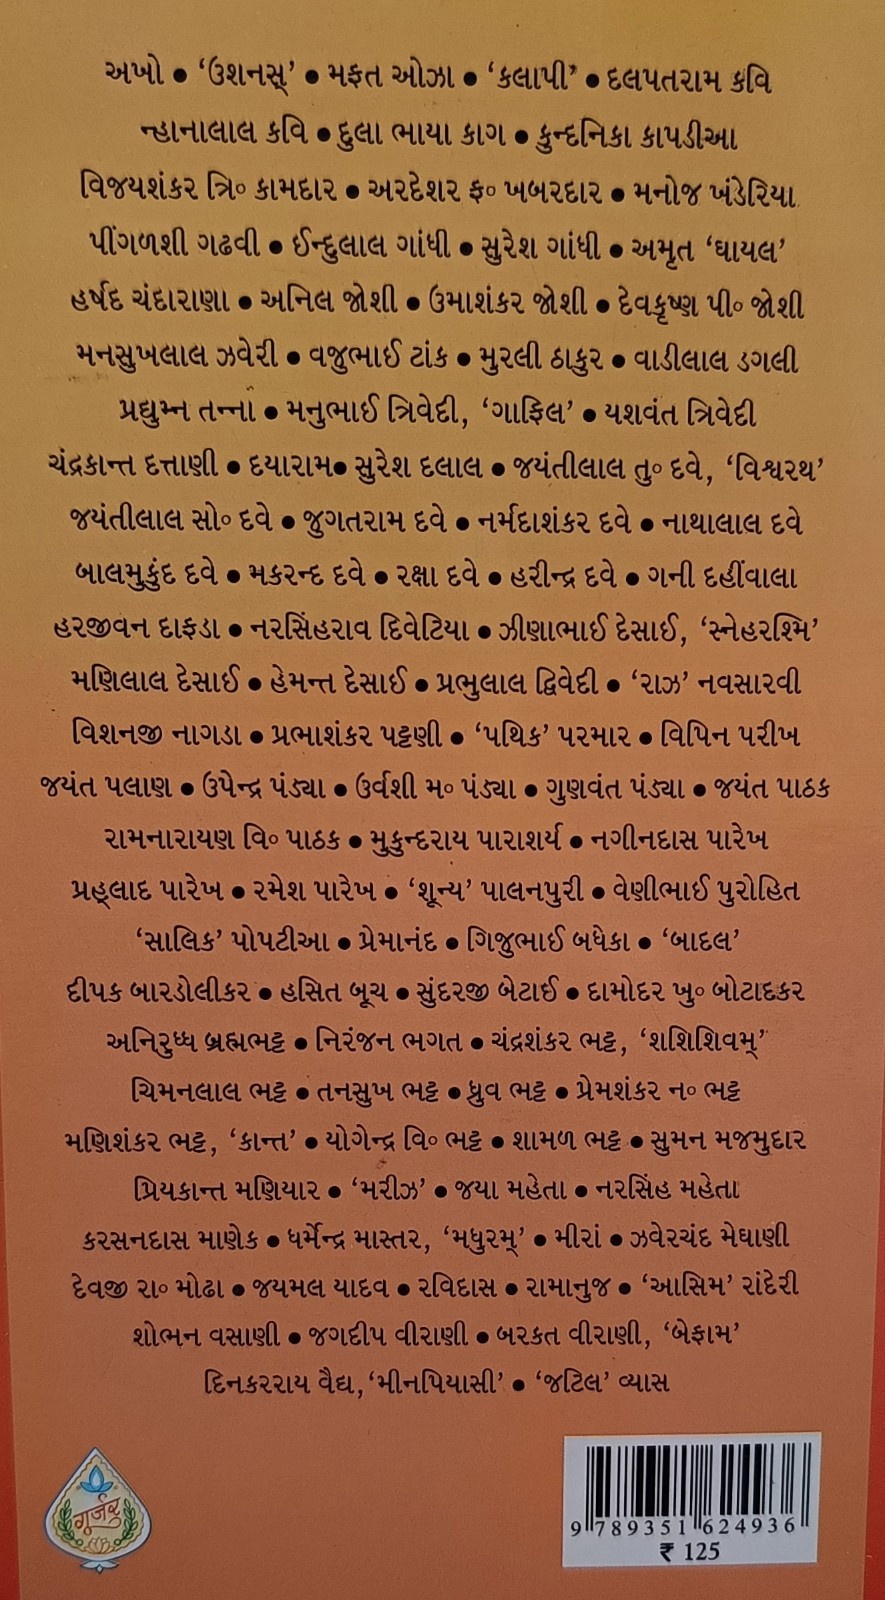 અખો • ‘ઉશનસ્’ • મફત ઓઝા • ‘કલાપી’ • દલપતરામ કવિ
ન્હાનાલાલ કવિ • દુલા ભાયા કાગ • કુન્દનિકા કાપડીઆ
વિજયશંકર ત્રિ૦ કામદાર • અરદેશર ફ૦ ખબરદાર • મનોજ ખંડેરિયા
પીંગળશી ગઢવી • ઈન્દુલાલ ગાંધી • સુરેશ ગાંધી • અમૃત ‘ઘાયલ’
હર્ષદ ચંદારાણા • અનિલ જોશી • ઉમાશંકર જોશી • દેવકૃષ્ણ પી૦ જોશી
મનસુખલાલ ઝવેરી • વજુભાઈ ટાંક • મુરલી ઠાકુર • વાડીલાલ ડગલી
પ્રદ્યુમ્ન તન્ના • મનુભાઈ ત્રિવેદી, ‘ગાફિલ’ • યશવંત ત્રિવેદી
ચંદ્રકાન્ત દત્તાણી • દયારામ • સુરેશ દલાલ • જયંતીલાલ તુ૦ દવે, ‘વિશ્વરથ’
જયંતીલાલ સો૦ દવે • જુગતરામ દવે • નર્મદાશંકર દવે • નાથાલાલ દવે
બાલમુકુંદ દવે • મકરન્દ દવે • રક્ષા દવે • હરીન્દ્ર દવે • ગની દહીંવાલા
હરજીવન દાફડા • નરસિંહરાવ દિવેટિયા • ઝીણાભાઈ દેસાઈ, ‘સ્નેહરશ્મિ’
મણિલાલ દેસાઈ • હેમન્ત દેસાઈ • પ્રભુલાલ દ્વિવેદી • ‘રાઝ’ નવસારવી
વિશનજી નાગડા • પ્રભાશંકર પટ્ટણી • ‘પથિક’ પરમાર • વિપિન પરીખ
જયંત પલાણ • ઉપેન્દ્ર પંડ્યા • ઉર્વશી મ૦ પંડ્યા • ગુણવંત પંડ્યા • જયંત પાઠક
રામનારાયણ વિ૦ પાઠક • મુકુન્દરાય પારાશર્ય • નગીનદાસ પારેખ
પ્રહ્‌લાદ પારેખ • રમેશ પારેખ • ‘શૂન્ય’ પાલનપુરી • વેણીભાઈ પુરોહિત
‘સાલિક’ પોપટીઆ • પ્રેમાનંદ • ગિજુભાઈ બધેકા • ‘બાદલ’
દીપક બારડોલીકર • હસિત બૂચ • સુંદરજી બેટાઈ • દામોદર ખુ૦ બોટાદકર
અનિરુધ્ધ બ્રહ્મભટ્ટ • નિરંજન ભગત • ચંદ્રશંકર ભટ્ટ, ‘શશિશિવમ્’
ચિમનલાલ ભટ્ટ • તનસુખ ભટ્ટ • ધ્રુવ ભટ્ટ • પ્રેમશંકર ન૦ ભટ્ટ
મણિશંકર ભટ્ટ, ‘કાન્ત’ • યોગેન્દ્ર વિ૦ ભટ્ટ • શામળ ભટ્ટ • સુમન મજમુદાર
પ્રિયકાન્ત મણિયાર • ‘મરીઝ’ • જયા મહેતા • નરસિંહ મહેતા
કરસનદાસ માણેક • ધર્મેન્દ્ર માસ્તર, ‘મધુરમ્’ • મીરાં • ઝવેરચંદ મેઘાણી
દેવજી રા૦ મોઢા • જયમલ યાદવ • રવિદાસ • રામાનુજ • ‘આસિમ’ રાંદેરી
શોભન વસાણી • જગદીપ વીરાણી • બરકત વીરાણી, ‘બેફામ’
દિનકરરાય વૈદ્ય, ‘મીનપિયાસી’ • ‘જટિલ’ વ્યાસ
ગૂર્જર
9 789351 624936
₹ 125